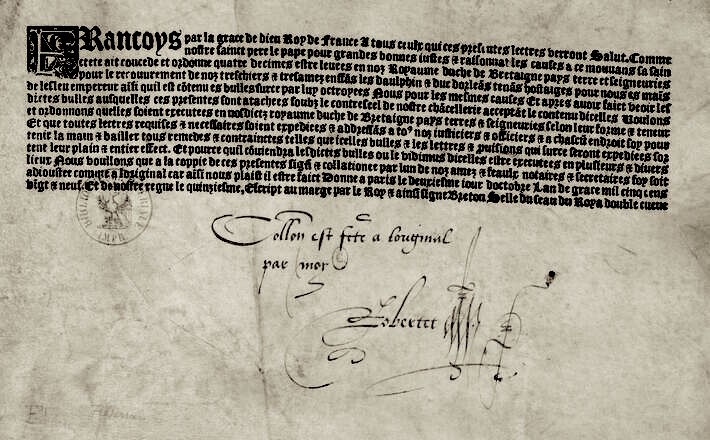 FRancoys par la grace de dieu Roy de France A tous ceulx qui ces presētes lettres verront Salut. Comme
nostre sainct pere le pape pour grandes bonnes iustes & raisonnaƀ les causes a ce mouuans sa sain
ctete ait cōcede et ordonne quatre decimes estre leuees en noz Royaume duche de Bretaigne pays terre et seigneuries
pour le recouurement de noz treschiers & tresamez enffās les daulphin & duc dorleās tenās hostaiges pour nous es mais
de lesleu empereur aīsi quil est cōtenu es bulles surce par luy octroyees Nous pour les mesmes causes Et apres auoir faict veoir les
dictes bulles ausquelles ces presentes sont atachees soubz le contreseel de nostre chācellerie acceptāt le contenu dicelles Voulons
et ordonnons quelles soient executees en nosdictz royaume duche de Bretaigne pays terres & seigneuries selon leur forme & teneur
Et que toutes lettres requises & necessaires soient expediees & addressās a to⁹ noz iusticiers & officiers & a chascū endroit soy pour
tenir la main & bailler tous remedes & contrainctes telles que icelles bulles & les lettres & puisions qui surce seront expediees sor
tent leur plain & entier effect. Et pource quil cōuiendra lesdictes bulles ou le vidimus dicelles estre executees en plusieurs & diuers
lieux Nous voullons que a la coppie de ces presentes sigñ & collationee par lun de noz amez & feaulx notaires & secretaires foy soit
adioustee comme a loriginal car aīsi nous plaist il estre faict Donne a paris le deuxiesme iour doctobre Lan de grace mil cinq cens
vīgt & neuf. Et de nostre regne le quinziesme, Escript au marge par le Roy & ainsi signe Breton. Selle du seau du Roy a double cueue
Collon est fcte a loriginal
par moy
Robertet